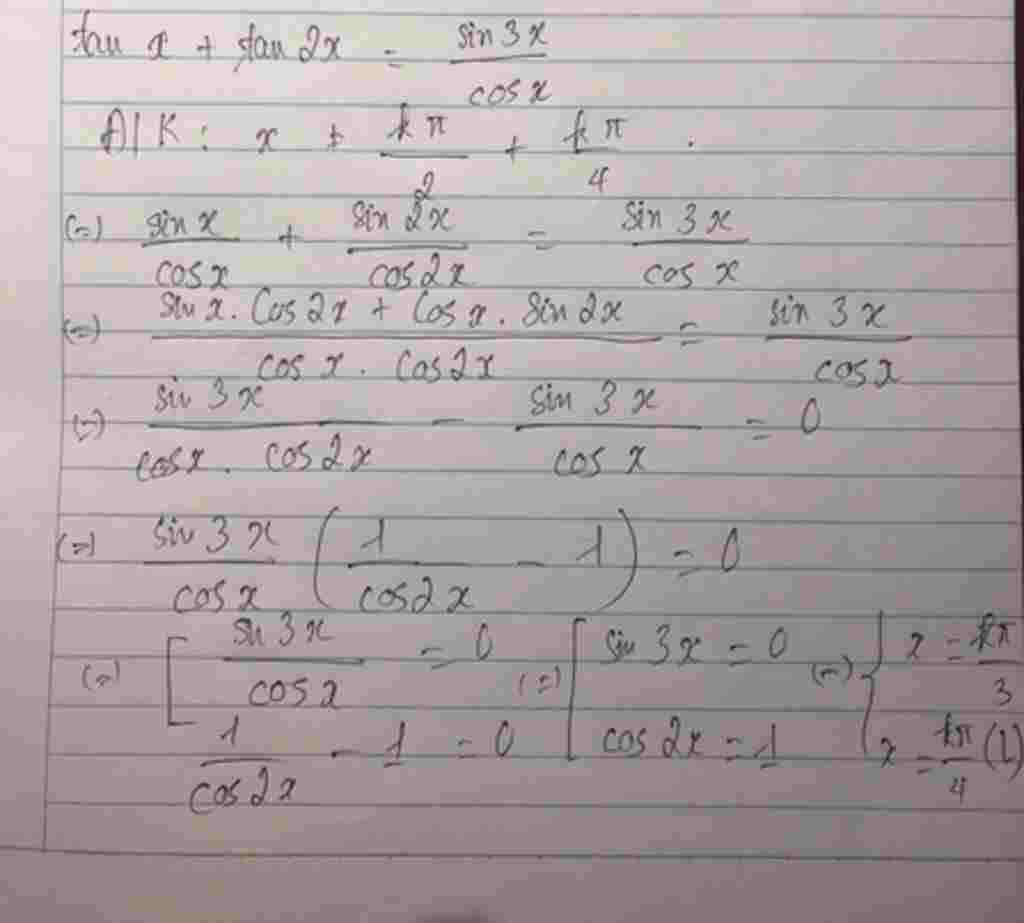 tan x + tan 2x = sin 3x / cos x
ĐK: x ≠ kπ/2 + kπ/4 .
(=) sin x / cos x + sin 2x / cos 2x = sin 3x / cos x
(=) sin x . Cos 2x + Cos x . Sin 2x / cos x . Cos 2x = sin 3x / cos x
(=) sin 3x / cos x . cos 2x - sin 3x / cos x = 0
(=) sin 3x / cos x ( 1 / cos 2x - 1 ) = 0
(=) [ sin 3x / cos x = 0 (=) [ sin 3x = 0 (=) { x = kπ/3
1 / cos 2x - 1 = 0 cos 2x = 1 x = kπ/4 (L)